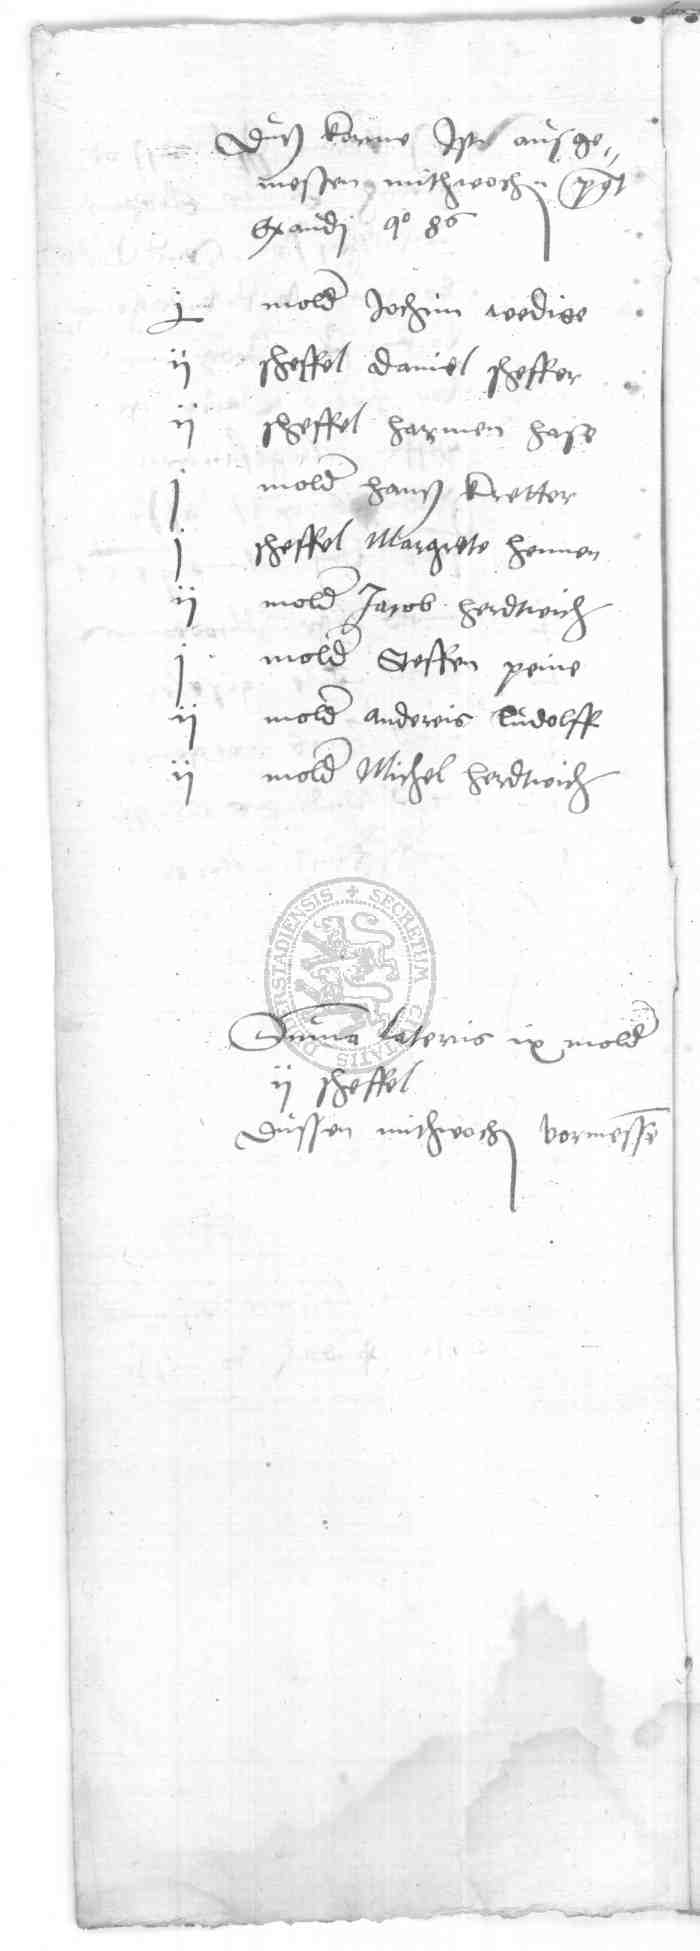 Duß korne Ist ausge„
messen mithwochen post
Exaudj ao 86
j mold Jochim wedige
ij scheffel Daniel scheffer
ij scheffel harmen hase
j mold hanß kretter
j scheffel Margrete hennen
ij mold Jacob herdtwich
j mold Steffen peine
ij mold andereis Ludolff
ij mold Michel herdtwich
SECRETUM CIVITATIS DUDERSTADIENSIS
Summa lateris ix mold
ij scheffel
Dussen mithwochen vormessen